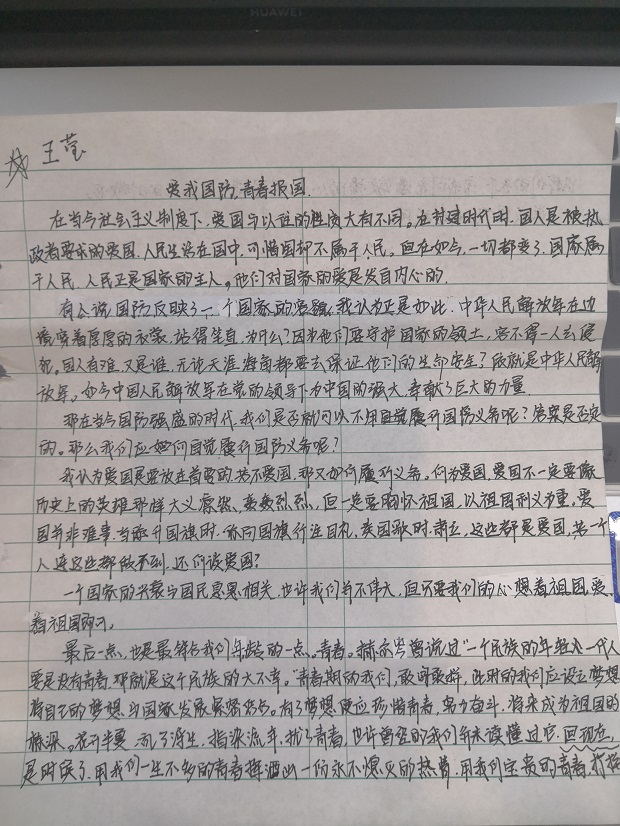 HUAWEI
王莹
爱我国防,青春报国
在当今社会主义制度下,爱国与以往的性质大有不同。在封建时代时,国人是被执
政者要求的爱国,人民生活在国中,可惜国却不属于人民。但在如今,一切都变了,国家属
于人民,人民正是国家的主人。他们对国家的爱是发自内心的。
有人说国防反映了一个国家的容貌,我认为正是如此,中华人民解放军在边
境穿着厚厚的衣裳,站得笔直,为什么?因为他们要守护国家的领土,容不得一人去侵
犯。国人有难,又是谁,无论天涯海角都要去保证他们的生命安全?依就是中华人民解
放军。如今中国人民解放军在党的领导下为中国的强大,奉献了巨大的力量
那在当今国防强盛的时代,我们是否就可以不用自觉履行国防义务呢?答案是否定
的。那么我们应如何自觉履行国防义务呢?
我认为爱国是要放在首要的,若不爱国,那又如何履行义务。何为爱国,爱国不一定要像
历史上的英雄那样大义凛然、轰轰烈烈,但一定要胸怀祖国,以祖国利义为重。爱
国并非难事,当添升国旗时,你向国旗行注目礼,奏国歌时,肃立,这些都是爱国,若一个
人连这些都做不到,还何谈爱国?
一个国家的兴衰与国民息息相关,也许我们并不伟大,但只要我们的心想着祖国,爱
着祖国即可。
最后一点,也是最符合我们年龄的一点,青春。赫尔岑曾说过"一个民族的年轻一代人
要是没有青春,那就是这个民族的大不幸。"青春期的我们,敢闯敢拼,此时的我们应设立梦想
将自己的梦想与国家发展紧密结合。有了梦想便应珍惜青春,努力奋斗,将来成为祖国的
栋梁。花开半夏,乱了浮生,指染流年,扰了青春,也许曾经的我们并未读懂过它,但现在,
是时候了,用我们一生不多的青春挥洒出一份永不熄灭的热情,用我们宝贵的青春,打拼